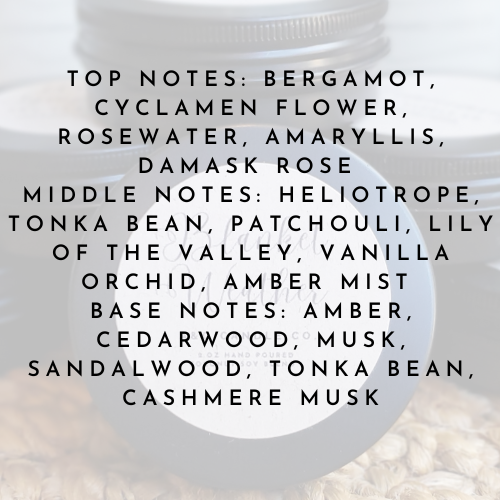 TOP NOTES: BERGAMOT,
CYCLAMEN FLOWER,
ROSEWATER, AMARYLLIS,
DAMASK ROSE
MIDDLE NOTES: HELIOTROPE,
TONKA BEAN, PATCHOULI, LILY
OF THE VALLEY, VANILLA
ORCHID, AMBER MIST
BASE NOTES: AMBER,
CEDARWOOD, MUSK,
SANDALWOOD, TONKA BEAN,
CASHMERE MUSK
Blanket
Weather
HAND POURED